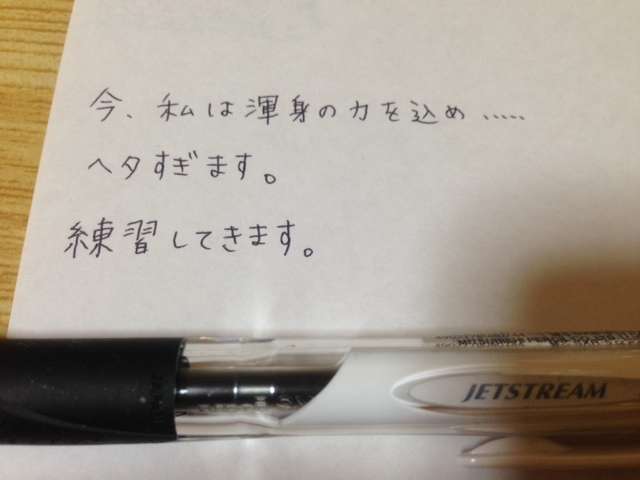 今、私は渾身の力を込め.....
ヘタすぎます。
練習してきます。
JETSTREAM